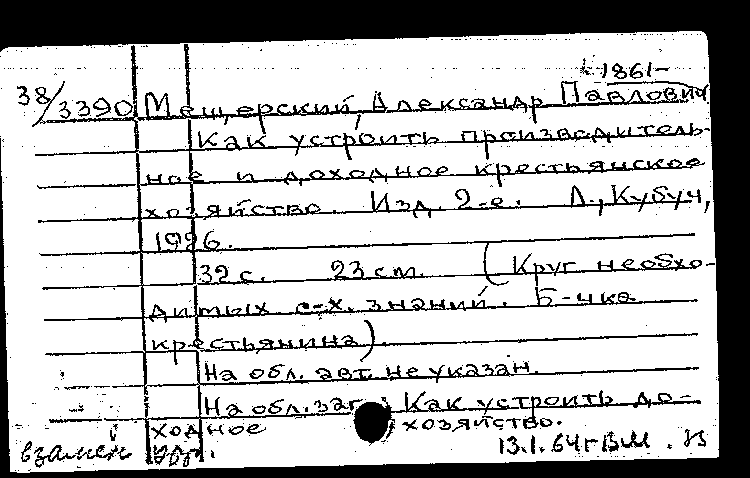 1861-
38/3390 Мещерский, Александр Павлович
Как устроить производитель-
ное и доходное крестьянское
хозяйство. Изд. 2-е. Л., Кубуч,
1926.
32 с. 23 cm. (Круг необхо-
димых с-х. знаний. Б-чка
крестьянина).
На обл. авт. не указан.
На обл. заг.: Как устроить до-
ходное хозяйство.
взамен 13.1.64г ВМ.